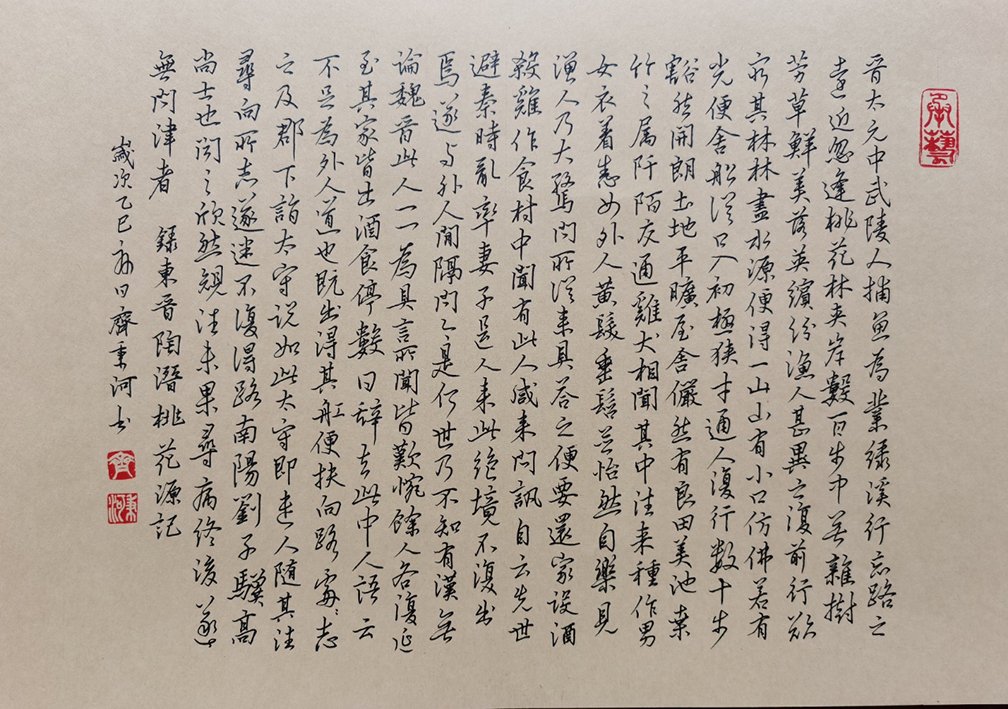 晉太元中武陵人捕魚為業緣溪行忘路之
遠近忽逢桃花林夾岸數百步中無雜樹
芳草鮮美落英繽紛漁人甚異之復前行欲
窮其林林盡水源便得一山山有小口仿佛若有
光便舍船從口入初極狹才通人復行数十步
豁然開朗土地平曠屋舍儼然有良田美池桑
竹之属阡陌交通雞犬相聞其中往来種作男
女衣着悉如外人黃髮垂髫並怡然自樂見
漁人乃大驚问所從来具答之便要還家設酒
殺雞作食村中聞有此人咸来问訊自云先世
避秦時亂率妻子邑人来此絕境不復出
焉遂与外人間隔问今是何世乃不知有漢無
論魏晉此人一一為具言所聞皆歎惋餘人各復延
至其家皆出酒食停數日辭去此中人語云
不足為外人道也既出得其船便扶向路處〻志
之及郡下詣太守説如此太守即遣人隨其往
尋向所志遂迷不復得路南陽劉子驥高
尚士也聞之欣然規往未果尋病終後遂
無问津者 錄東晉陶潛桃花源記
歲次乙巳秋日齊秉河書
齊
秉河